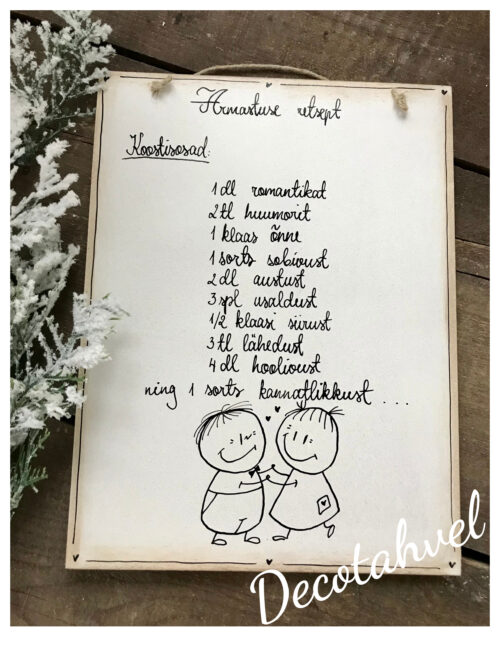 Armastuse retsept
Koostisosad:
1 dl romantikat
2 tl huumorit
1 klaas õnne
1 sorts sobivust
2 dl austust
3 spl usaldust
1/2 klaasi siirust
3 tl lähedust
4 dl hoolivust
ning 1 sorts kannatlikkust ...
Decotahvel